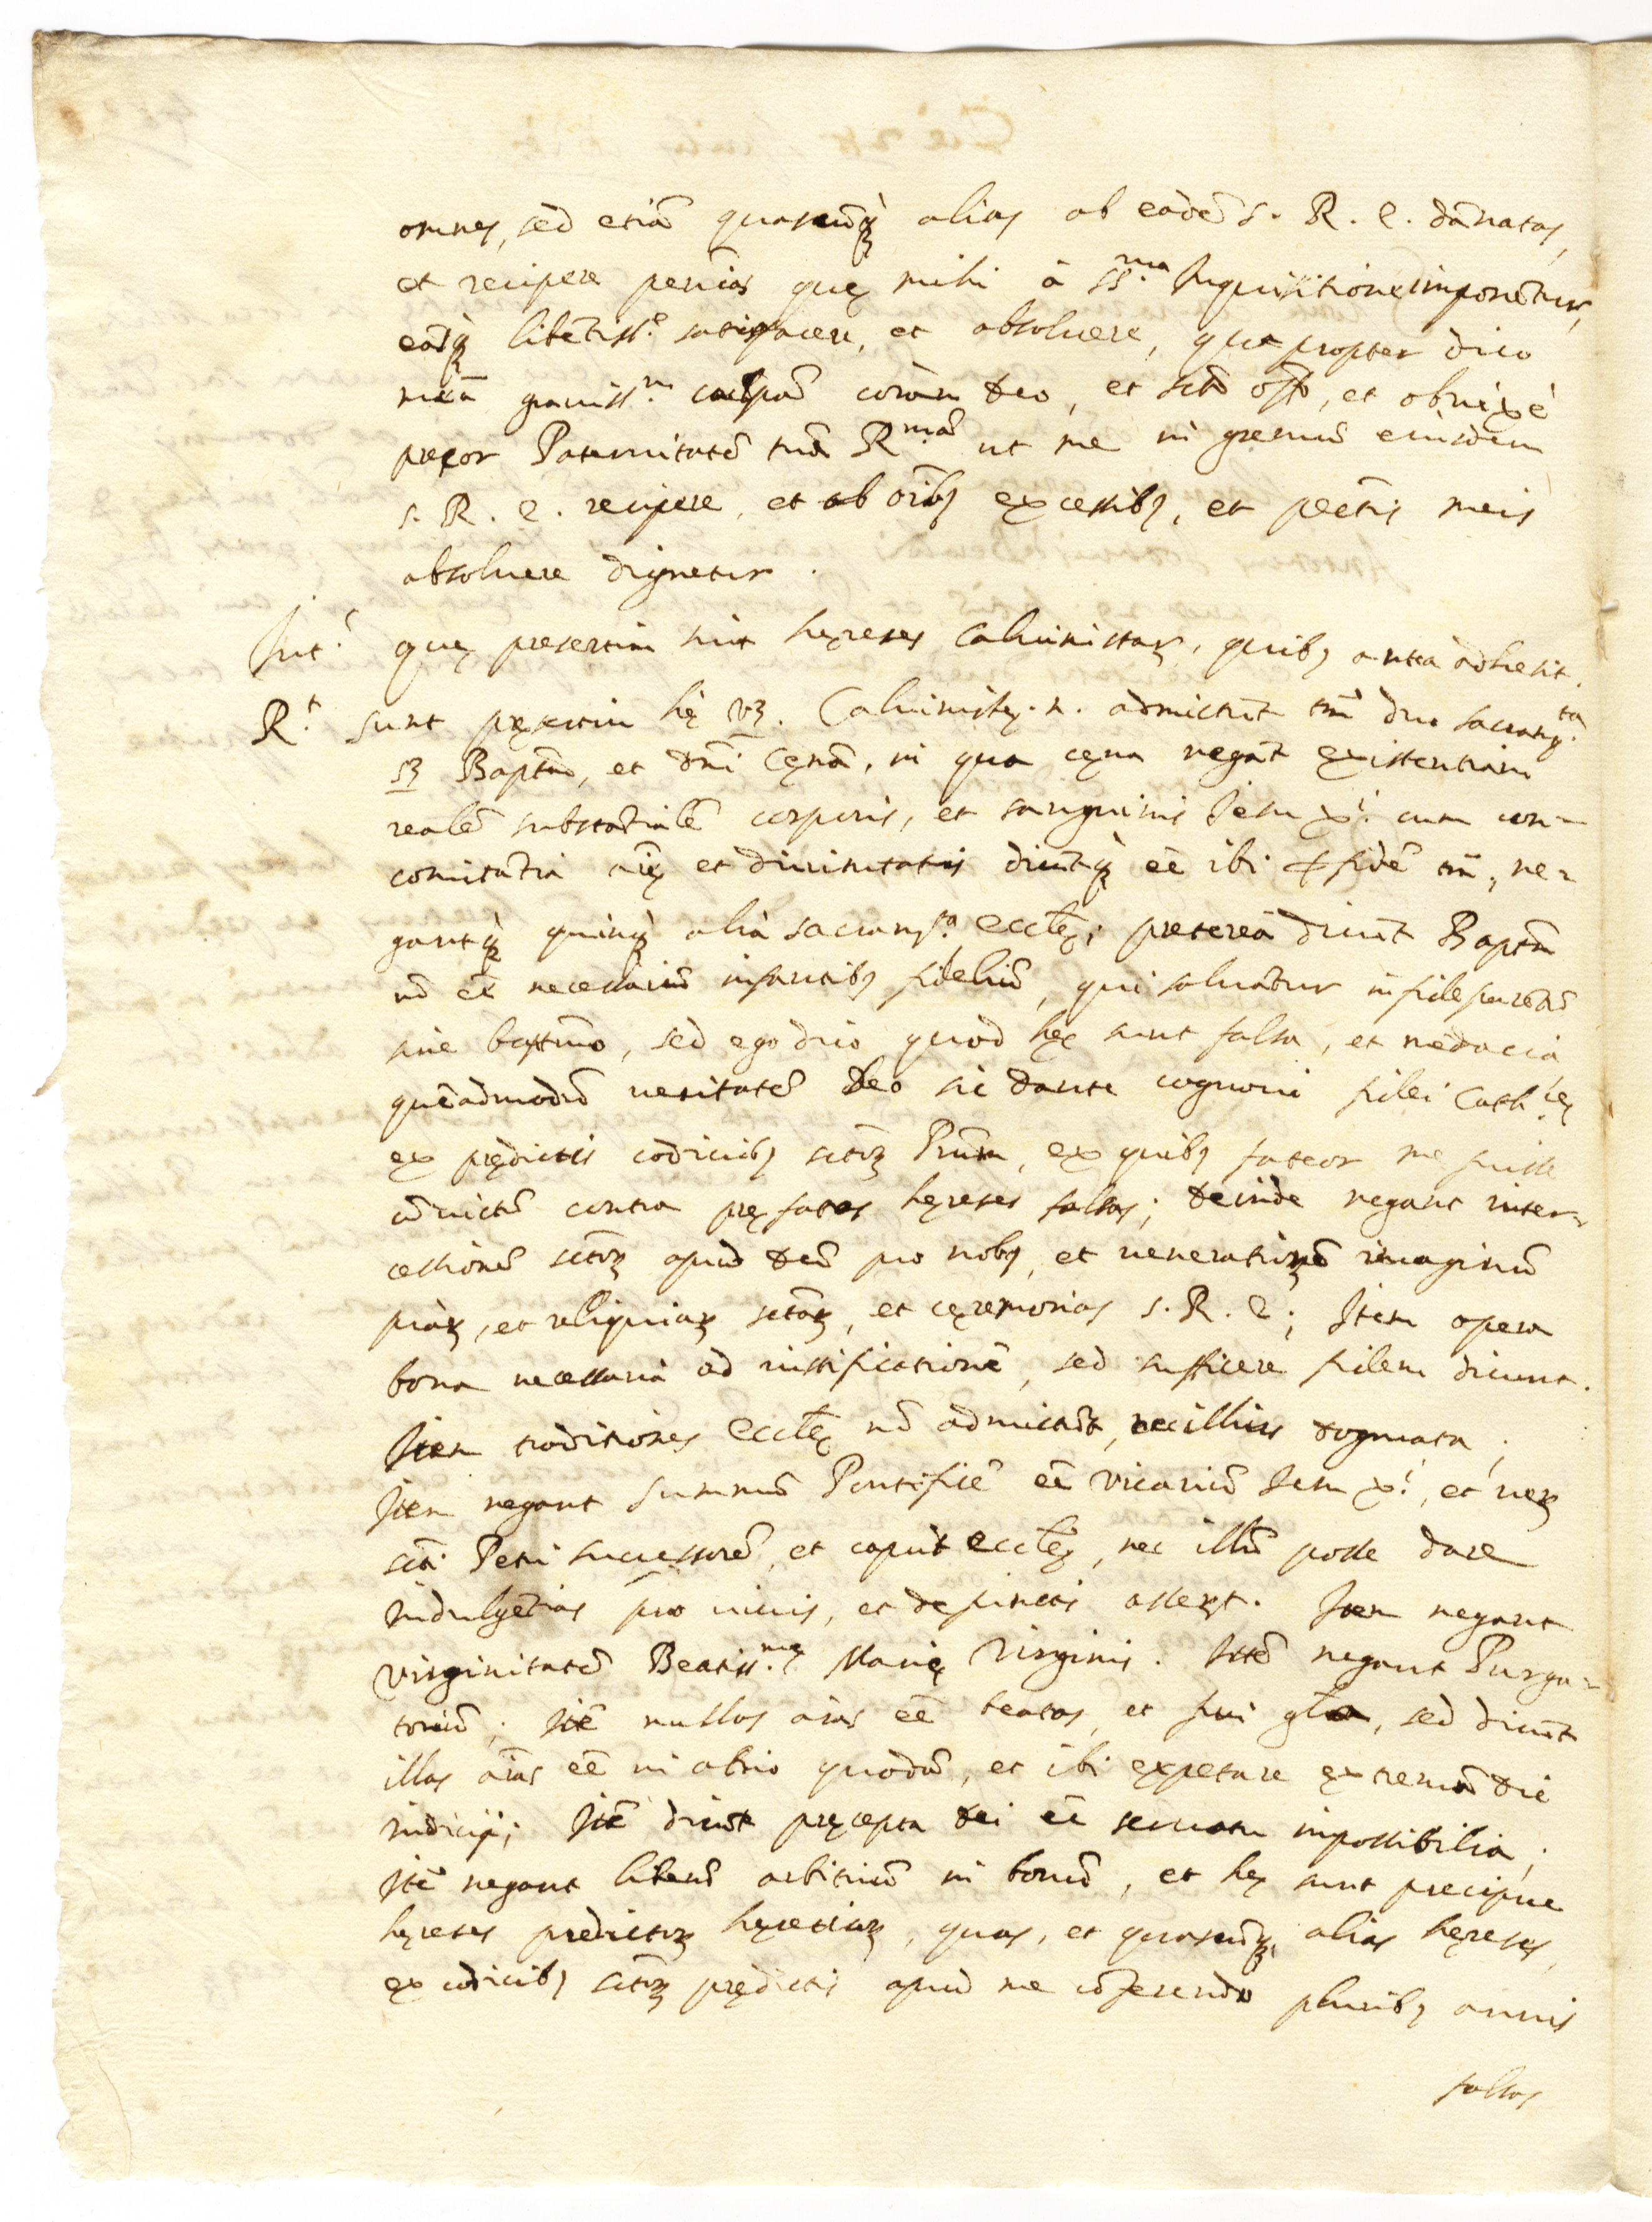 omnes, sed etiā quascūq̀ȝ alias ab eadē S. R. E. dānatas,
et recipere penīas quę mihi à SS.ma Inquisitione imponētur,
easq̀ȝ libētiss.e satisfacere, et absoluere, qua propter dico
meā grauiss.m culpā coram Deo, et scto offo, et obnixè
precor Paternitatē tuā R.mā ut me in gremiū eiusdem
S. R. E. recipere, et ab oībȝ excessibȝ, et pectīs meis
absoluere dignetur.
Int.s quę presertim sint hęreses Caluinistarȝ, quibȝ antea adhesit.
R.t sunt pręsertim hę vȝ. Caluinistę .n. admictūt tm̄ duo sacramēta
sȝ Baptm̄, et Dnī Cęnā, in qua cęna negāt existentiam
realē substātialē corporis, et sanguinis Jesu Xi. cum con-
comitātia aīę et diuinitatis dicūtq̀ȝ eē ibi ꝑ fidē tm̄, ne-
gantq̀ȝ quinq̀ȝ alia sacram.ta Eccłę; preterea dicūt Baptm̄
nō eē necessariū infantibȝ fideliū, qui saluātur in fide parētū
sine baptmo, sed ego dico quod hęc sunt falsa, et mēdacia,
quēadmodū ueritatē Deo sic dante cognoui fidei Cath.cę
ex prędictis codicibȝ sctorȝ Prūm, ex quibȝ fateor me fuisse
cōuictū contra pręfatas hęreses falsas; deinde negant inter-
cessionē sctorȝ apud Deū pro nobȝ, et uenerationē imaginū
piarȝ, et reliquiarȝ sctorȝ, et cęremonias S. R. E; Item opera
bona necessaria ad iustificationē, sed sufficere fidem dicunt.
Item traditiones Eccłę nō admictūt, nec illius dogmata;
Item negant summū Pontificē eē vicariū Jesu Xi., et uerȝ
scti Petri successorē, et caput Eccłę, nec illū posse dare
indulgētias pro uiuis, et defunctis asserȝt. Item negant
virginitatē Beatiss.mę Marię Virginis. Itē negant Purga-
toriū; Itē nullas aīas eē beatas, et frui gła, sed dicūt
illas aīas eē in atrio quodā, et ibi expectare extremū diē
iudicij; Itē dicūt pręcepta Dei eē seruatu impossibilia;
Itē negant liberū arbitriū in bonū, et hę sunt precipue
hęreses predictorȝ hęreticorȝ, quas, et quascūq̀ȝ alias hęreses,
ex codicibȝ sctorȝ prędictis apud me cōferendo pluribȝ annis
falsas